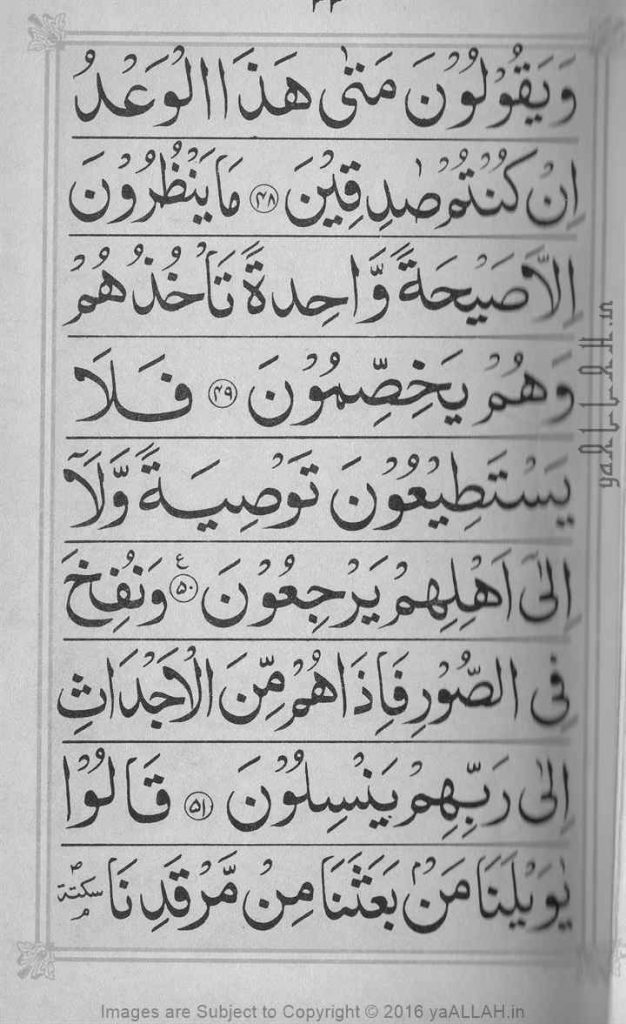 ٢٣
وَيَقُوْلُوْنَ مَتٰى هَذَا الْوَعْدُ
اِنْ كُنْتُمْ صٰدِقِيْنَ ﴿۴۸﴾ مَا يَنْظُرُوْنَ
اِلَّا صَيْحَةً وَّاحِدَةً تَاْخُذُهُمْ
وَهُمْ يَخِصِّمُوْنَ ﴿۴۹﴾ فَلَا
يَسْتَطِيْعُوْنَ تَوْصِيَةً وَّلَآ
اِلٰٓى اَهْلِهِمْ يَرْجِعُوْنَ ﴿۵۰﴾ ع وَنُفِخَ
فِى الصُّوْرِ فَاِذَا هُمْ مِّنَ الْاَجْدَاثِ
اِلٰى رَبِّهِمْ يَنْسِلُوْنَ ﴿۵۱﴾ قَالُوْا
يٰوَيْلَنَا مَنْۢ بَعَثَنَا مِنْ مَّرْقَدِنَا سكتة
yaALLAH.in
Images are Subject to Copyright © 2016 yaALLAH.in